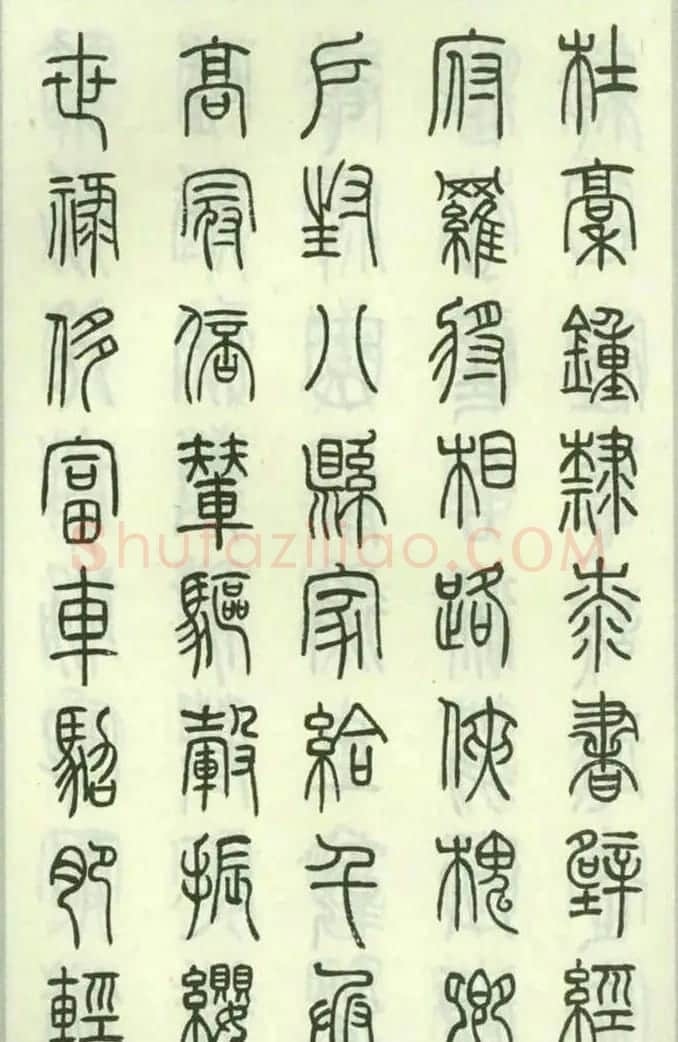 杜稾鍾隸桼書壁經
府羅將相路俠槐卿
戶封八縣家給千兵
高冠陪輦驅轂振纓
世祿侈富車駕肥輕
Shufaziliao.COM